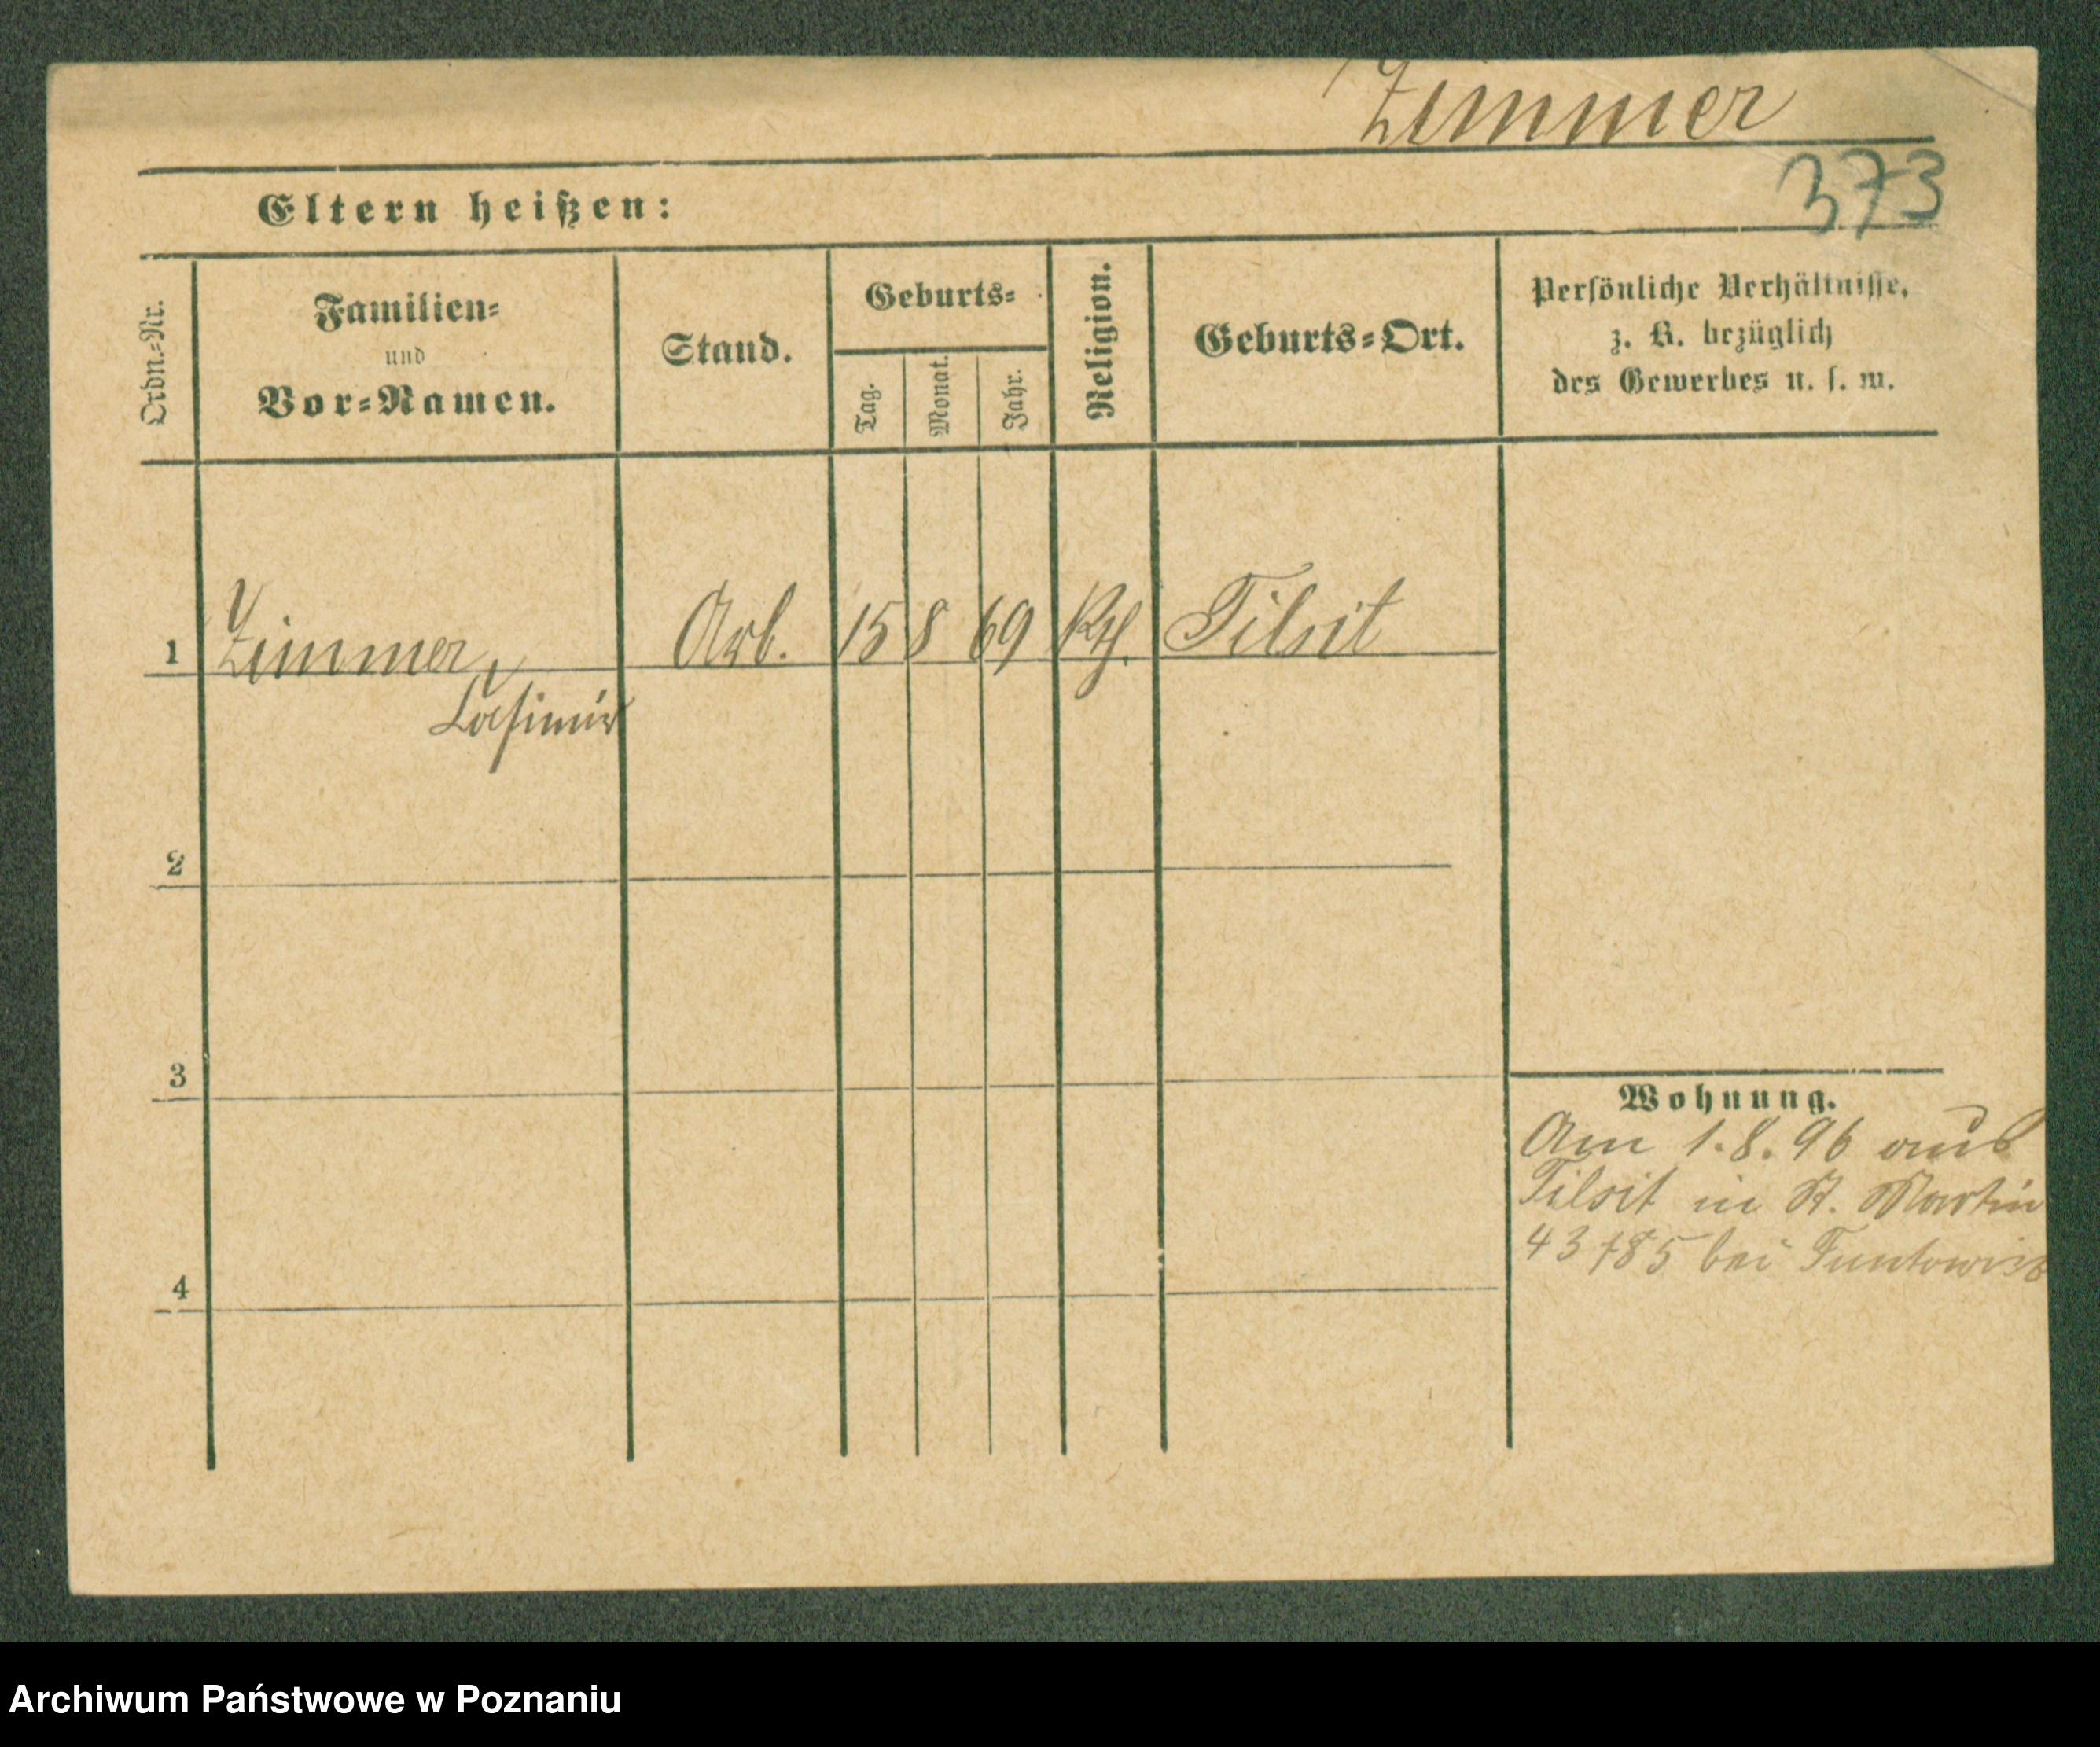 Zimmer
373
Eltern heißen:
Ordn.-Nr.
Familien-
und
Vor-Namen.
Stand.
Geburts-
Tag.
Monat.
Jahr.
Religion.
Geburts-Ort.
Persönliche Verhältnisse,
z. B. bezüglich
des Gewerbes u. s. w.
1 Zimmer, Arb. 15 8 69 Kth. Tilsit
Casimir
2
3
4
Wohnung.
Am 1.8.96 aus
Tilsit in St. Martin
43 bei
Archiwum Państwowe w Poznaniu